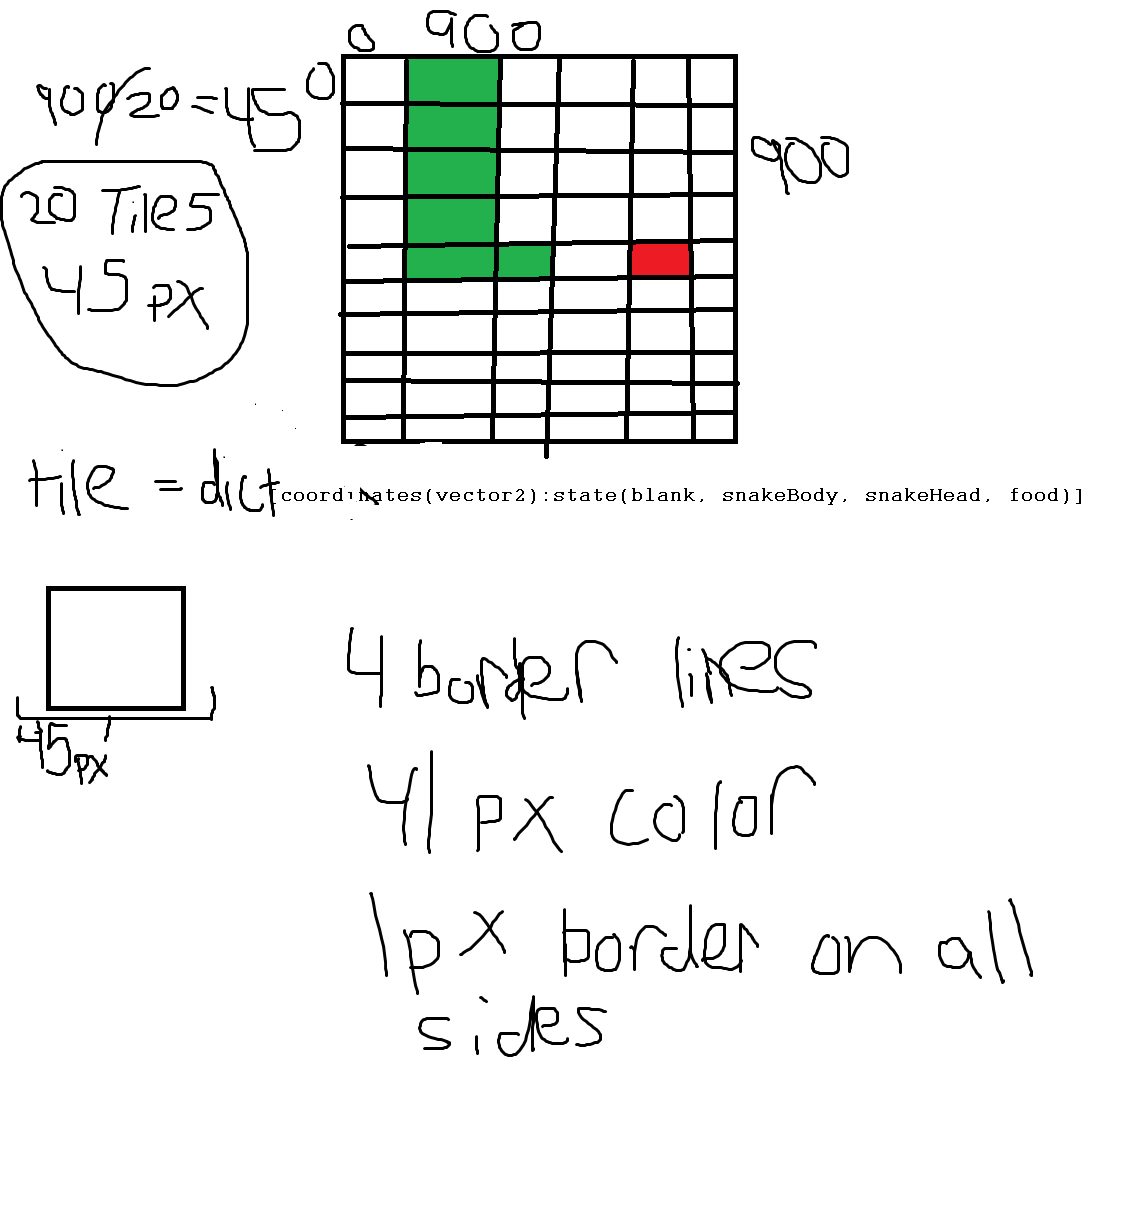 0 900
0
900/20 = 45
900
20 Tiles
45 px
tile = dict[coordinates(vector2):state(blank, snakeBody, snakeHead, food)]
45px
4 border lines
41 px color
1px border on all
sides